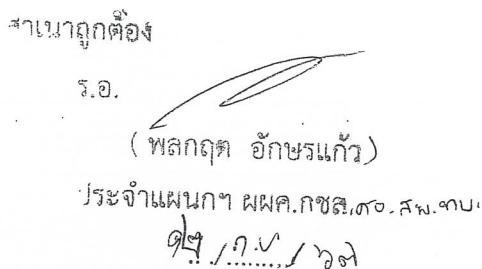 สำเนาถูกต้อง
ร.อ.
( พลกฤต อักษรแก้ว)
ประจำแผนกฯ ผผค.กชส.ศอ.สพ.ทบ.
๑๒ / ก.ย / ๖๗